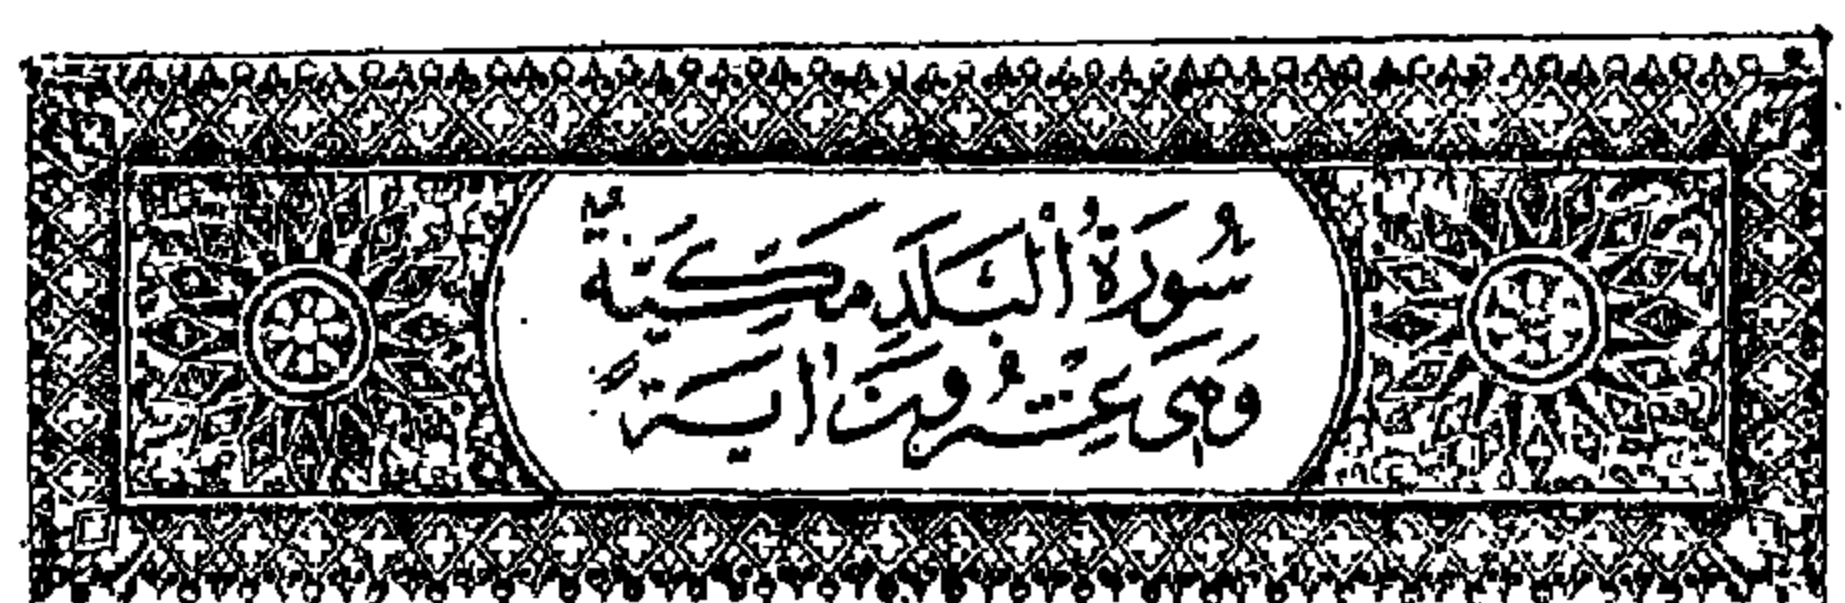 سُورَةُ ٱلْبَلَدِ مَكِّيَّةٌ
وَهِىَ عِشْرُونَ اٰيَةً